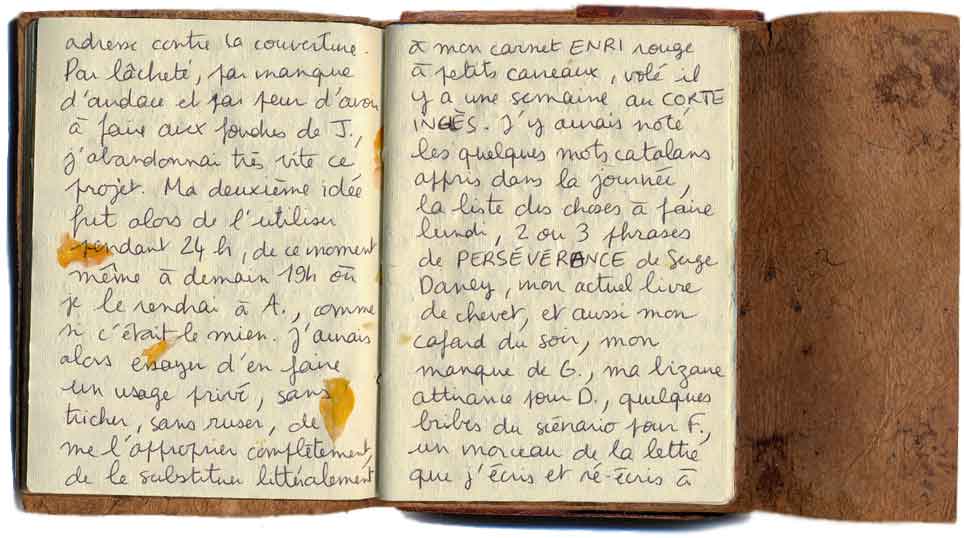 adresse contre la couverture.
Par lâcheté, par manque
d'audace et par peur d'avoir
à faire aux foudres de J.,
j'abandonnai très vite ce
projet. Ma deuxième idée
fut alors de l'utiliser
pendant 24 h, de ce moment
même à demain 19h où
je le rendrai à A., comme
si c'était le mien. J'aurais
alors essayer d'en faire
un usage privé, sans
tricher, sans ruser, de
me l'approprier complètement,
de le substituer littéralement
à mon carnet ENRI rouge
à petits carreaux, volé il
y a une semaine au CORTE
INGLÈS. J'y aurais noté
les quelques mots catalans
appris dans la journée,
la liste des choses à faire
lundi, 2 ou 3 phrases
de PERSÉVÉRANCE de Serge
Daney, mon actuel livre
de chevet, et aussi mon
cafard du soir, mon
manque de G., ma bizarre
attirance pour D., quelques
bribes du scénario pour F.,
un morceau de la lettre
que j'écris et ré-écris à